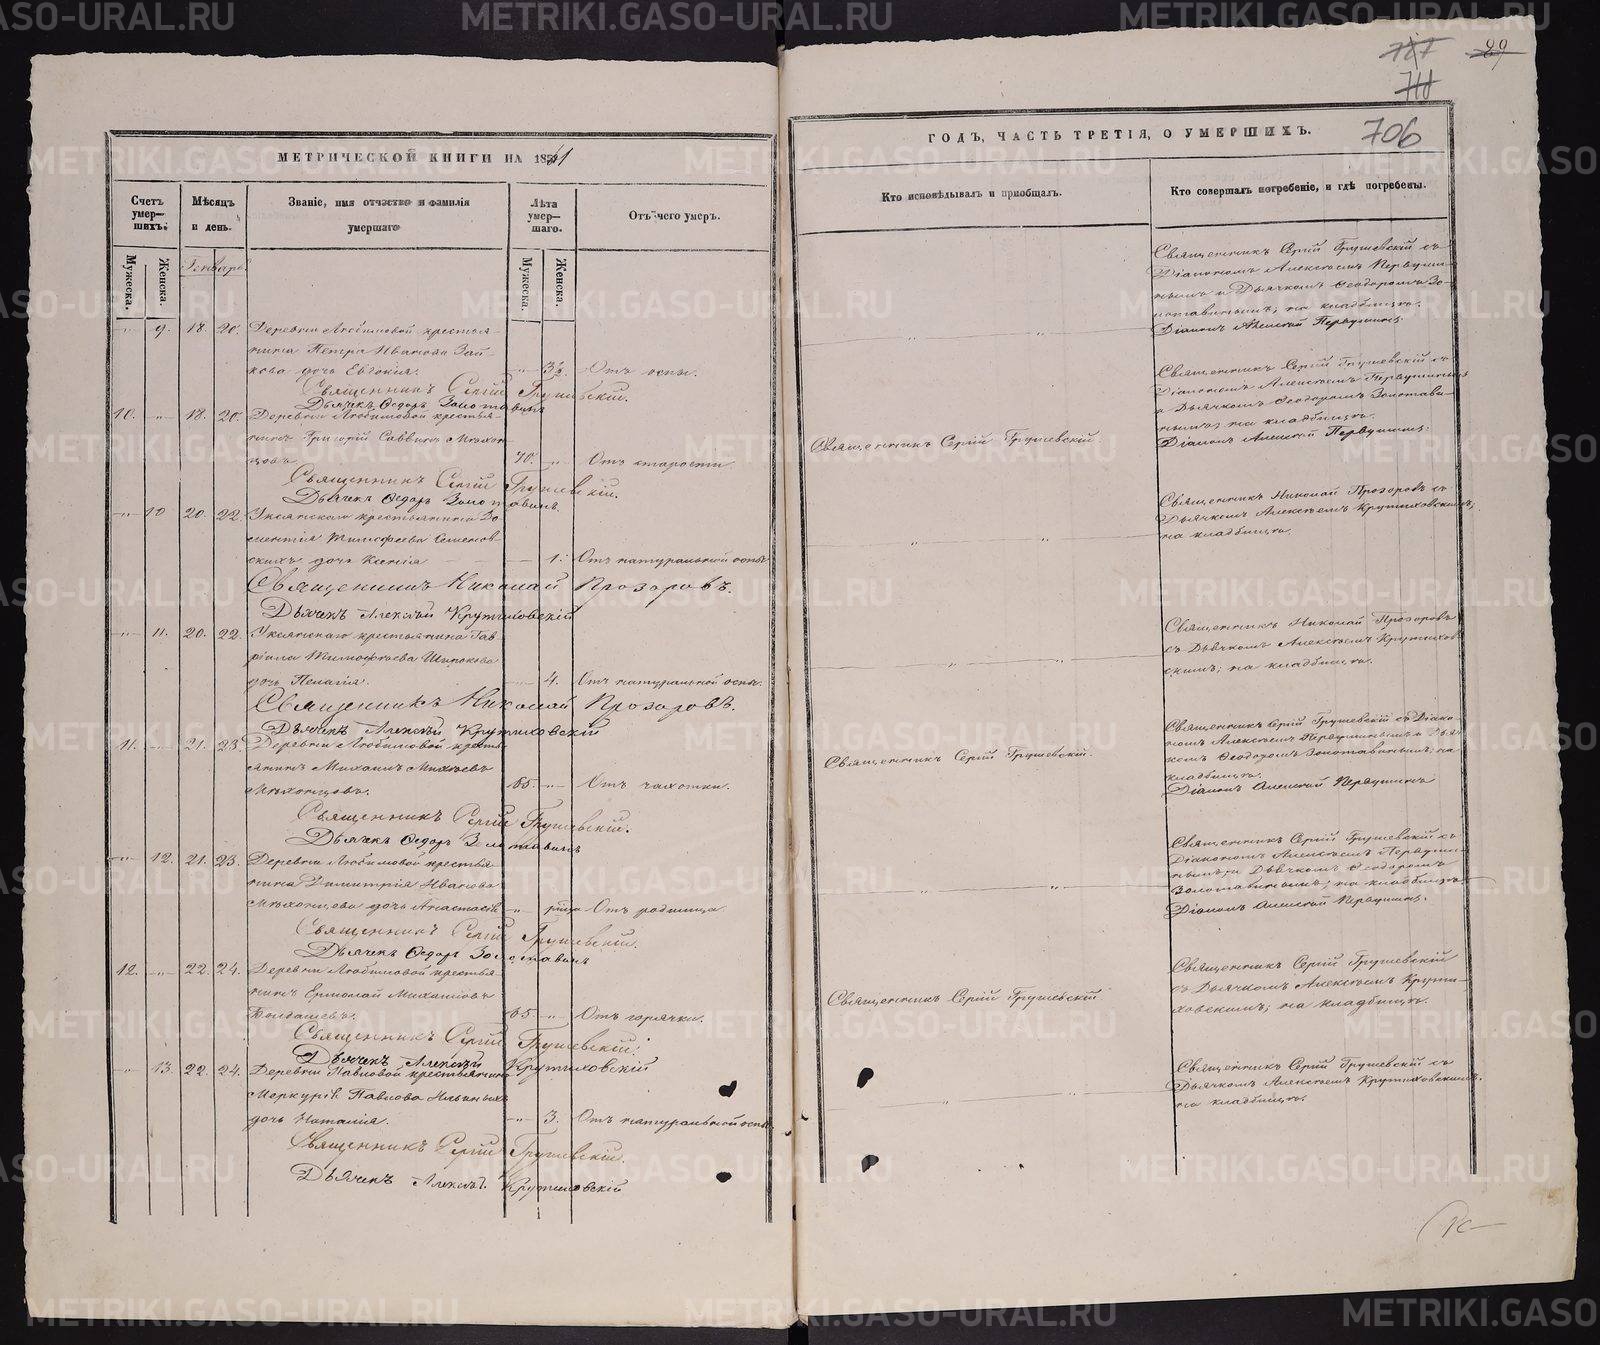 727 29
711
706
МЕТРИЧЕСКОЙ КНИГИ НА 1841
ГОДЪ, ЧАСТЬ ТРЕТІЯ, О УМЕРШИХЪ.
Счетъ умер-шихъ.
Мѣсяцъ и день.
Званіе, имя отчество и фамилія умершаго
Лѣта умер-шаго.
Отъ чего умеръ.
Кто исповѣдывалъ и пріобщалъ.
Кто совершалъ погребеніе, и гдѣ погребены.
Мужеска. Женска. Генварь. Мужеска. Женска.
„ 9. 18. 20. Деревни Любимовой крестья-
нина Петра Иванова Зай-
кова дочь Евгенія. „ 3½. Отъ оспы.
Священникъ Сергій Грушевскій.
Дьячекъ Ѳедоръ Золотавинъ
Священникъ Сергій Грушевскій съ
Діакономъ Алексѣемъ Первуши-
нымъ и Дьячкомъ Ѳеодоромъ Зо-
лотавинымъ, на кладбищѣ.
Діаконъ Алексѣй Первушинъ.
10. „ 18. 20. Деревни Любимовой крестья-
нинъ Григорій Саввинъ Мѣхон-
цовъ 70. „ Отъ старости.
Священникъ Сергій Грушевскій.
Дьячекъ Ѳедоръ Золотавинъ.
Священникъ Сергій Грушевскій
Священникъ Сергій Грушевскій съ
Діакономъ Алексѣемъ Первушинымъ
и Дьячкомъ Ѳеодоромъ Золотави-
нымъ; на кладбищѣ.
Діаконъ Алексѣй Первушинъ.
„ 10 20. 22. Уксянскаго крестьянина
Тимофеева Семенов-
скихъ дочь Ксенія 1. Отъ натуральной оспы
Священникъ Николай Прозоровъ.
Дьячекъ Алексѣй Крутиховскій
Священникъ Николай Прозоровъ съ
Дьячкомъ Алексѣемъ Крутиховскимъ;
на кладбищѣ.
„ 11. 20. 22. Уксянскаго крестьянина Гав-
ріила Тимофѣева Широкова
дочь Пелагія. 4. Отъ натуральной оспы.
Священникъ Николай Прозоровъ.
Дьячекъ Алексѣй Крутиховскій
Священникъ Николай Прозоровъ
съ Дьячкомъ Алексѣемъ Крутихов-
скимъ; на кладбищѣ.
11. „ 21. 23. Деревни Любимовой кресть-
янинъ Михаилъ Михѣевъ
Мѣхонцовъ. 65. „ Отъ чахотки.
Священникъ Сергій Грушевскій.
Дьячекъ Ѳедоръ Золотавинъ
Священникъ Сергій Грушевскій
Священникъ Сергій Грушевскій съ Діако-
номъ Алексѣемъ Первушинымъ и Дьяч-
комъ Ѳеодоромъ Золотавинымъ; на
кладбищѣ.
Діаконъ Алексѣй Первушинъ
„ 12. 21. 23. Деревни Любимовой крестья-
нина Димитрія Иванова
Мѣхонцева дочь Анастасія „ Отъ родимца
Священникъ Сергій Грушевскій.
Дьячекъ Ѳедоръ Золотавинъ
Священникъ Сергій Грушевскій съ
Діакономъ Алексѣемъ Первуши-
нымъ, и Дьячкомъ Ѳеодоромъ
Золотавинымъ; на кладбищѣ.
Діаконъ Алексѣй Первушинъ.
12. „ 22. 24. Деревни Любимовой крестья-
нинъ Ермолай Михайловъ
65 „ Отъ горячки.
Священникъ Сергій Грушевскій.
Дьячекъ Алексѣй Крутиховскій
Священникъ Сергій Грушевскій
Священникъ Сергій Грушевскій
съ Дьячкомъ Алексѣемъ Крути-
ховскимъ; на кладбищѣ.
„ 13. 22. 24. Деревни Павловой крестьянина
Меркурія Павлова Ильиныхъ
дочь Наталія. „ 3. Отъ натуральной оспы.
Священникъ Сергій Грушевскій.
Дьячекъ Алексѣй Крутиховскій
Священникъ Сергій Грушевскій съ
Дьячкомъ Алексѣемъ Крутиховскимъ.
на кладбищѣ.
METRIKI.GASO-URAL.RU